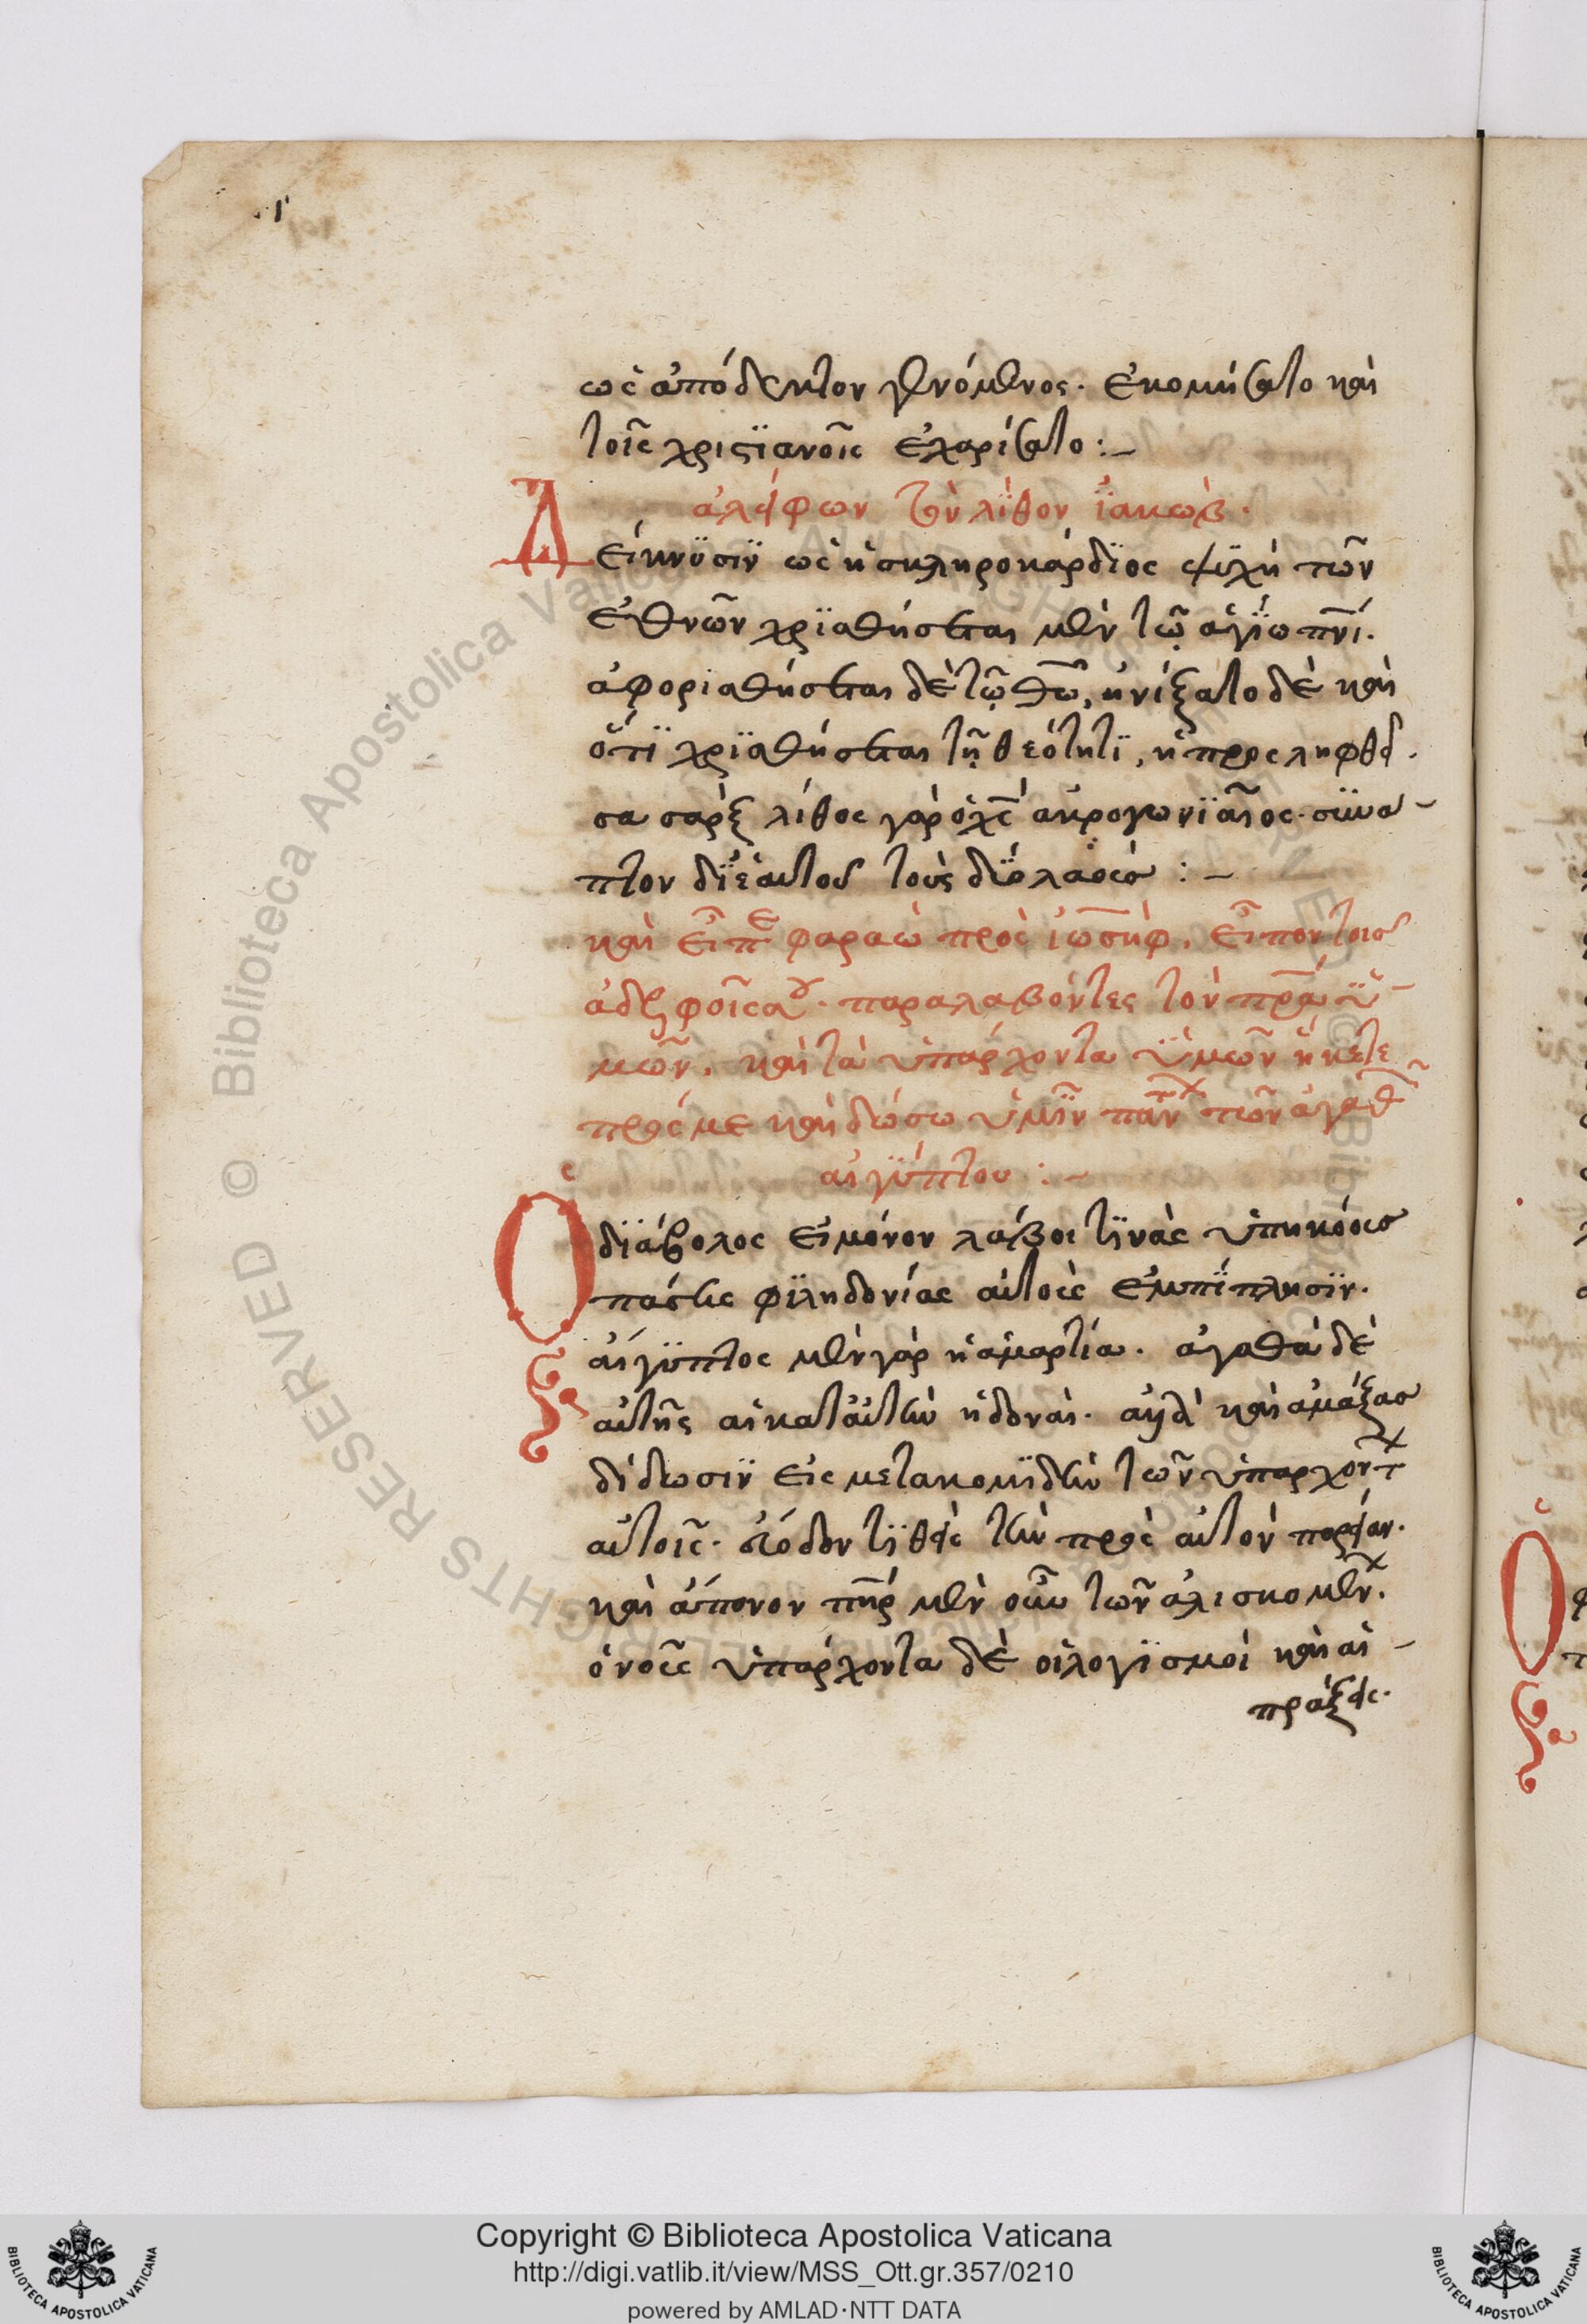 ὡς ἀπόδεκτον γενόμενος. ἐκομήσατο καὶ
τοῖς χριστϊανοῖς ἐχαρίσατο :–
ἀλείφων τὸν λίθον ϊακὼβ.
Δείκνϋσϊν ὡς ἡ σκληροκάρδϊος ψϋχὴ τῶν
ἐθνῶν χρϊσθήσεται μὲν τῷ ἁγΐω πνί.
ἀφορισθήσεται δὲ τῷ θῶ, ἠνίξατο δὲ καὶ
ὅτϊ χρϊσθήσεται τῇ θεότητϊ, ἡ προσληφθεῖ
σα σὰρξ λίθος γὰρ ὁ χς ἀκρογωνϊαῖος. σϋνά–
πτον δϊ ἑαυτοῦ τοὺς δύο λαοὺς :–
καὶ εἶπε φαραὼ πρὸς ἰωσὴφ. εἶπον τοῖς
ἀδελφοῖς σου. παραλαβόντες τὸν πρα ϋ–
μῶν. καὶ τὰ ὑπάρχοντα ϋμῶν ἥκετε
πρός με καὶ δώσω ὑμῖν πάντων τῶν ἀγαθῶν
αἰγύπτου :–
Ὁ δϊάβολος εἰ μόνον λάβοι τϊνὰς ὑπηκόους
πάσης φϊληδονίας αὐτοὺς ἐμπΐπλησϊν.
αἴγϋπτος μὲν γὰρ ἡ ἁμαρτία. ἀγαθὰ δὲ
αὐτῆς αἱ κατ αὐτὴν ἡδοναὶ. ἀλλὰ καὶ ἁμάξας
δίδωσϊν εἰς μετακομϊδὴν τῶν ὑπαρχόντων
αὐτοῖς. εὔοδον τϊθεὶς τὴν πρὸς αὐτὸν πορείαν.
καὶ ἄπονον πηρ μὲν οὖν τῶν ἁλισκομένων.
ὁ νοῦς ὑπάρχοντα δὲ οἱ λογϊσμοὶ καὶ αἱ –
πράξεις.
Copyright © Biblioteca Apostolica Vaticana
http://digi.vatlib.it/view/MSS_Ott.gr.357/0210
powered by AMLAD·NTT DATA